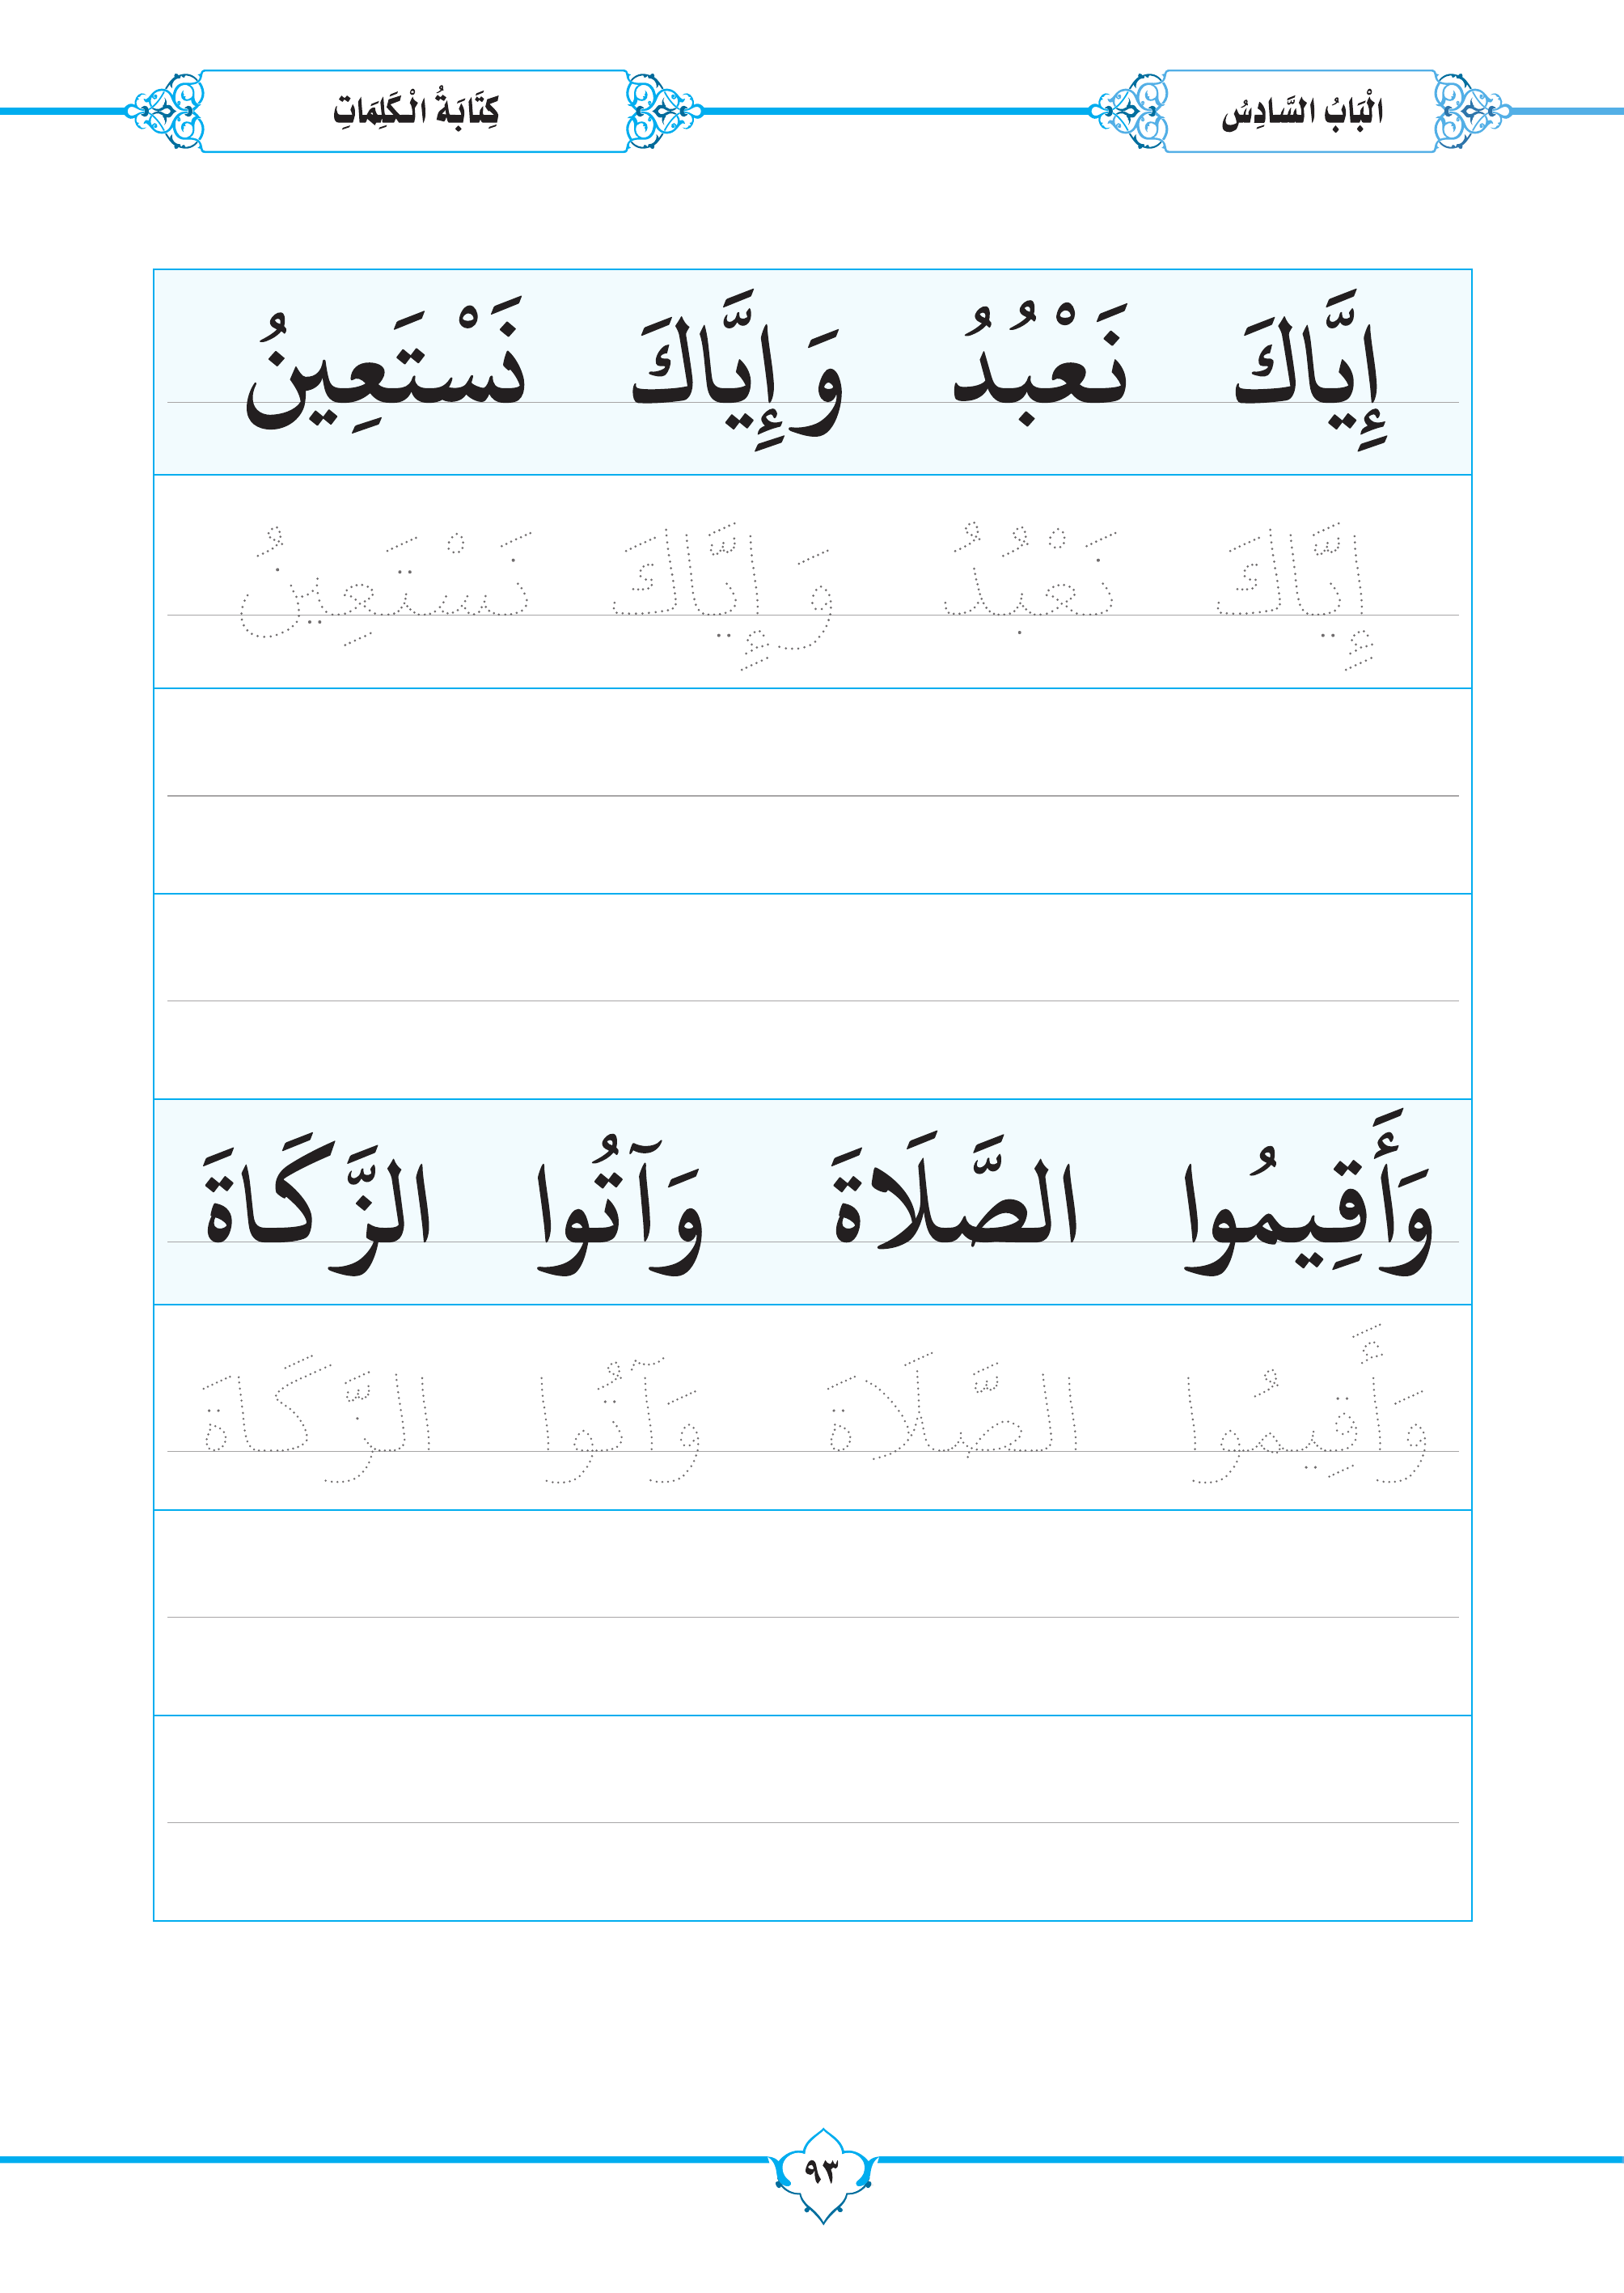 الْبَابُ السَّادِسُ
كِتَابَةُ الْكَلِمَاتِ
إِيَّاكَ نَعْبُدُ وَإِيَّاكَ نَسْتَعِينُ
إِيَّاكَ نَعْبُدُ وَإِيَّاكَ نَسْتَعِينُ
وَأَقِيمُوا الصَّلَاةَ وَآتُوا الزَّكَاةَ
وَأَقِيمُوا الصَّلَاةَ وَآتُوا الزَّكَاةَ
٩٣